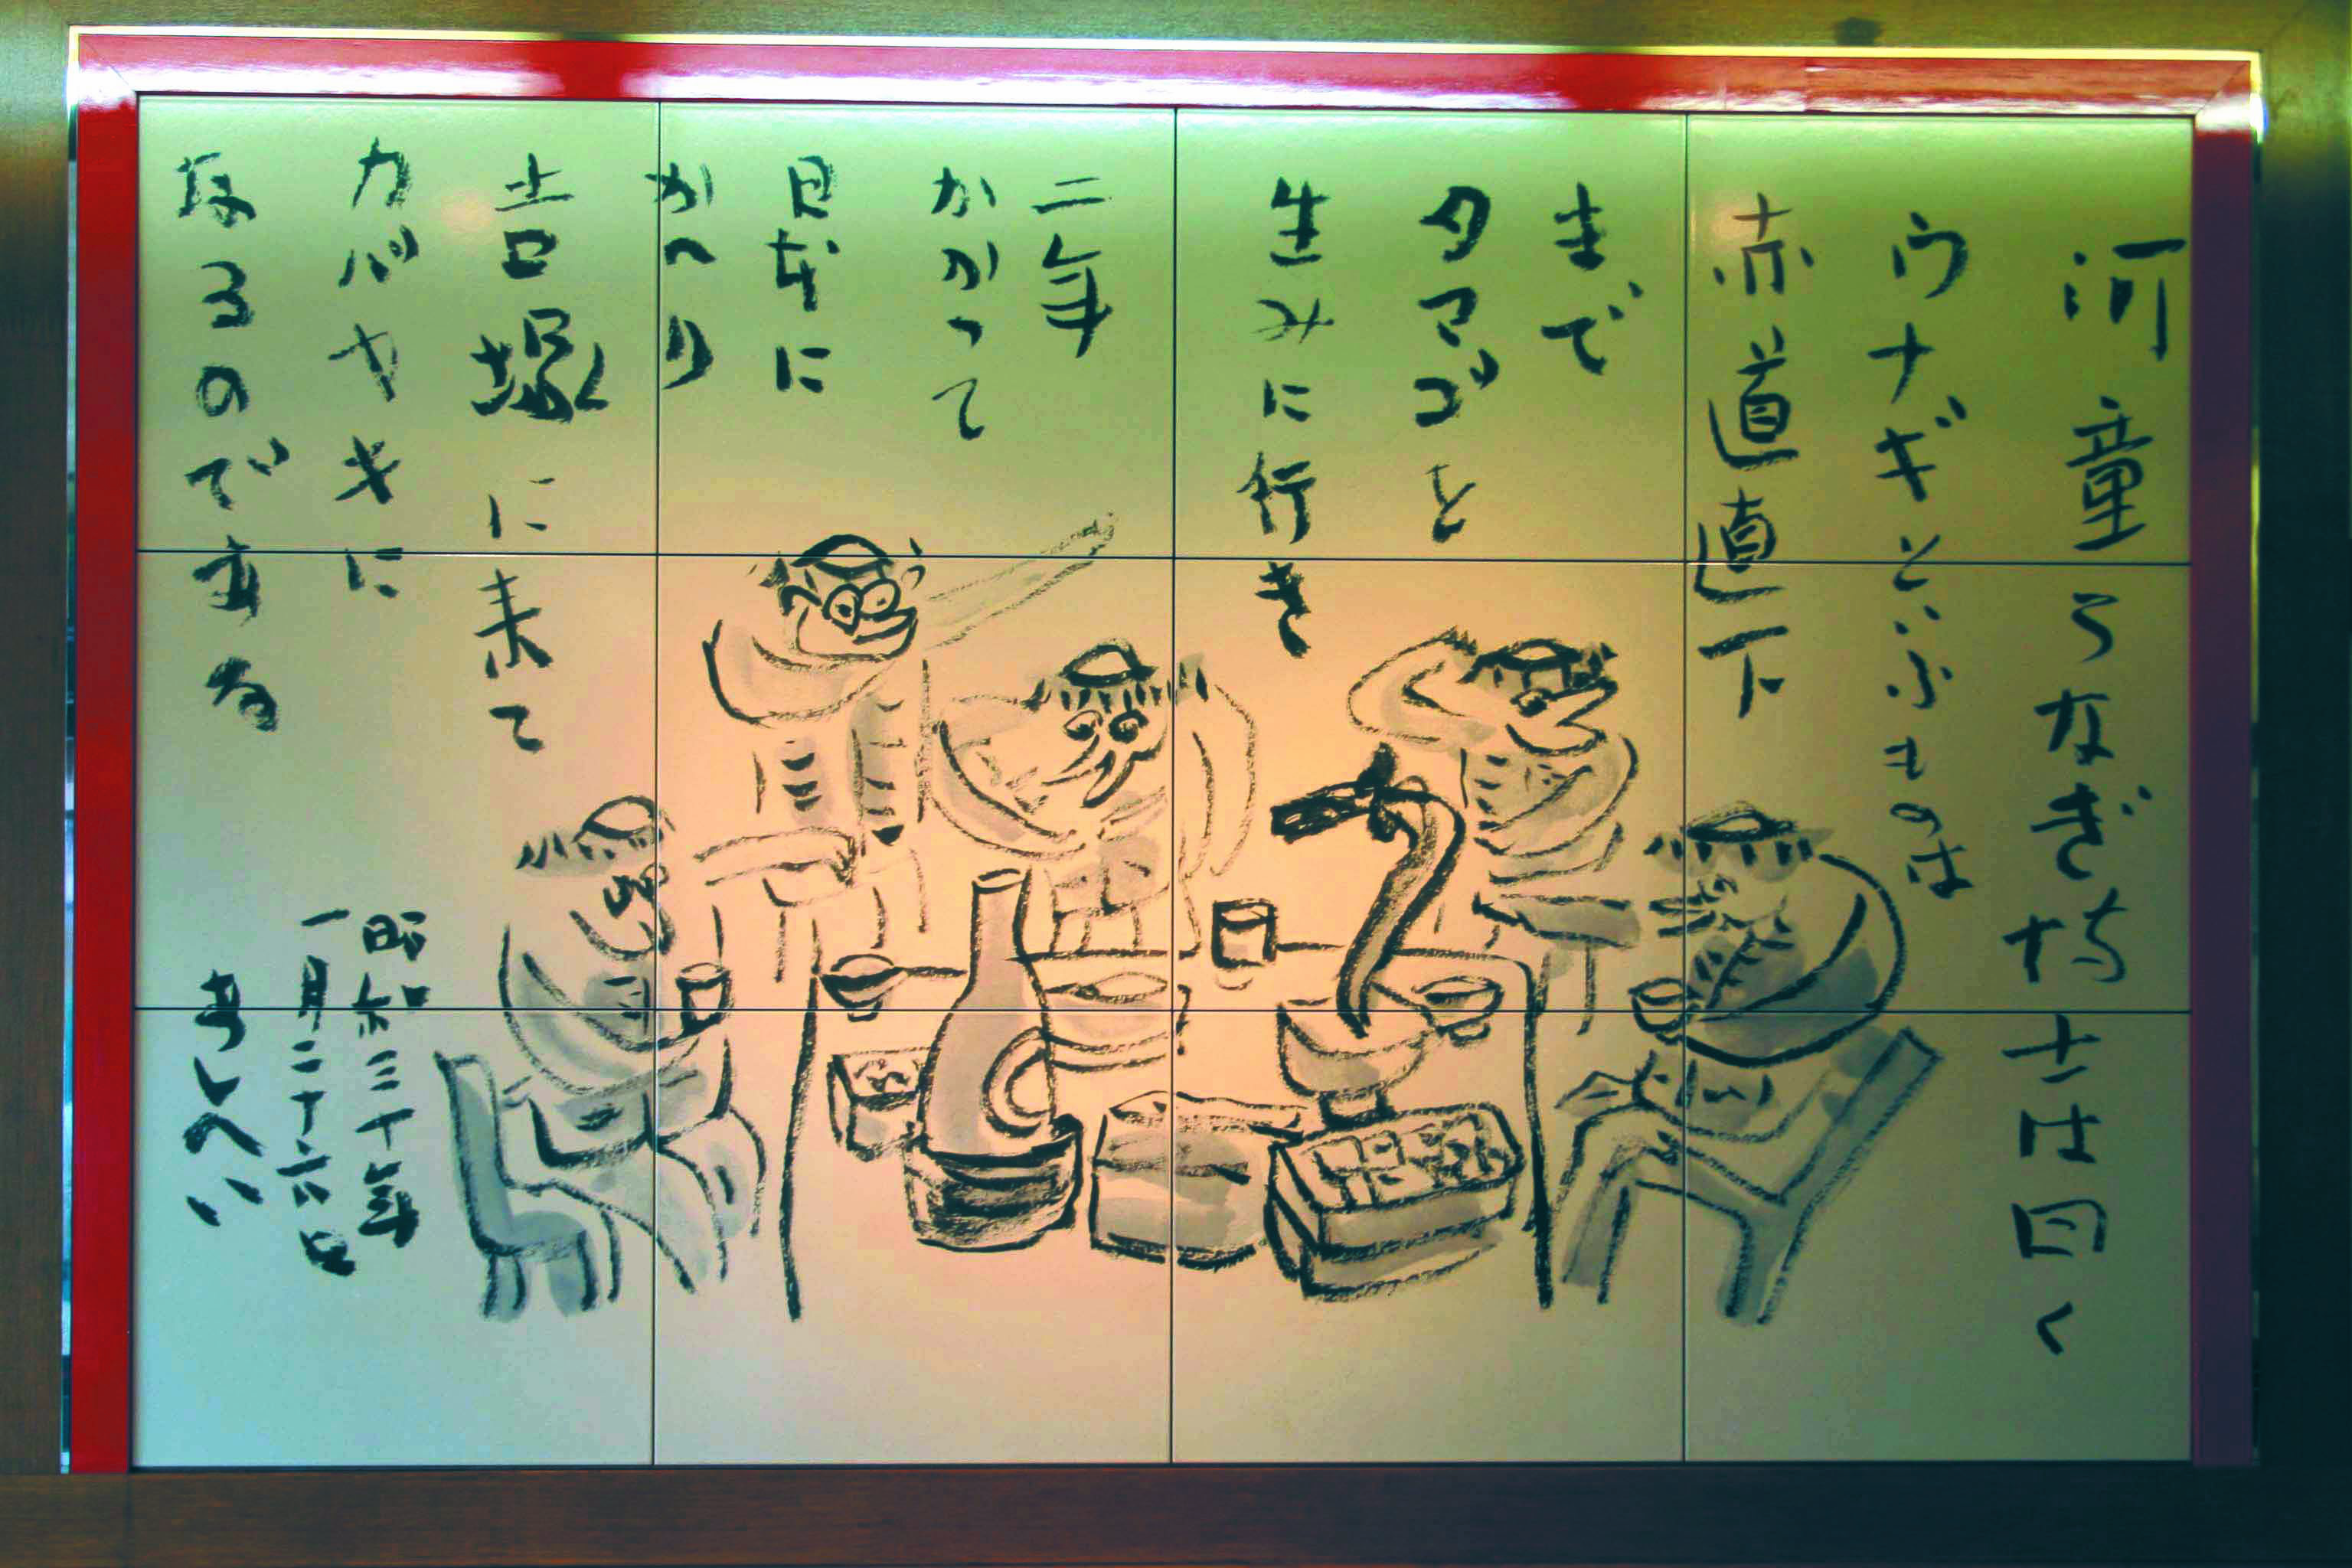 河童うなぎ博士は曰く
ウナギといふものは
赤道直下
まで
タマゴを
生みに行き
二年
かかって
日本に
かへり
吉塚に来て
カバヤキに
なるのである
昭和三十年
一月二十六日
あしへい